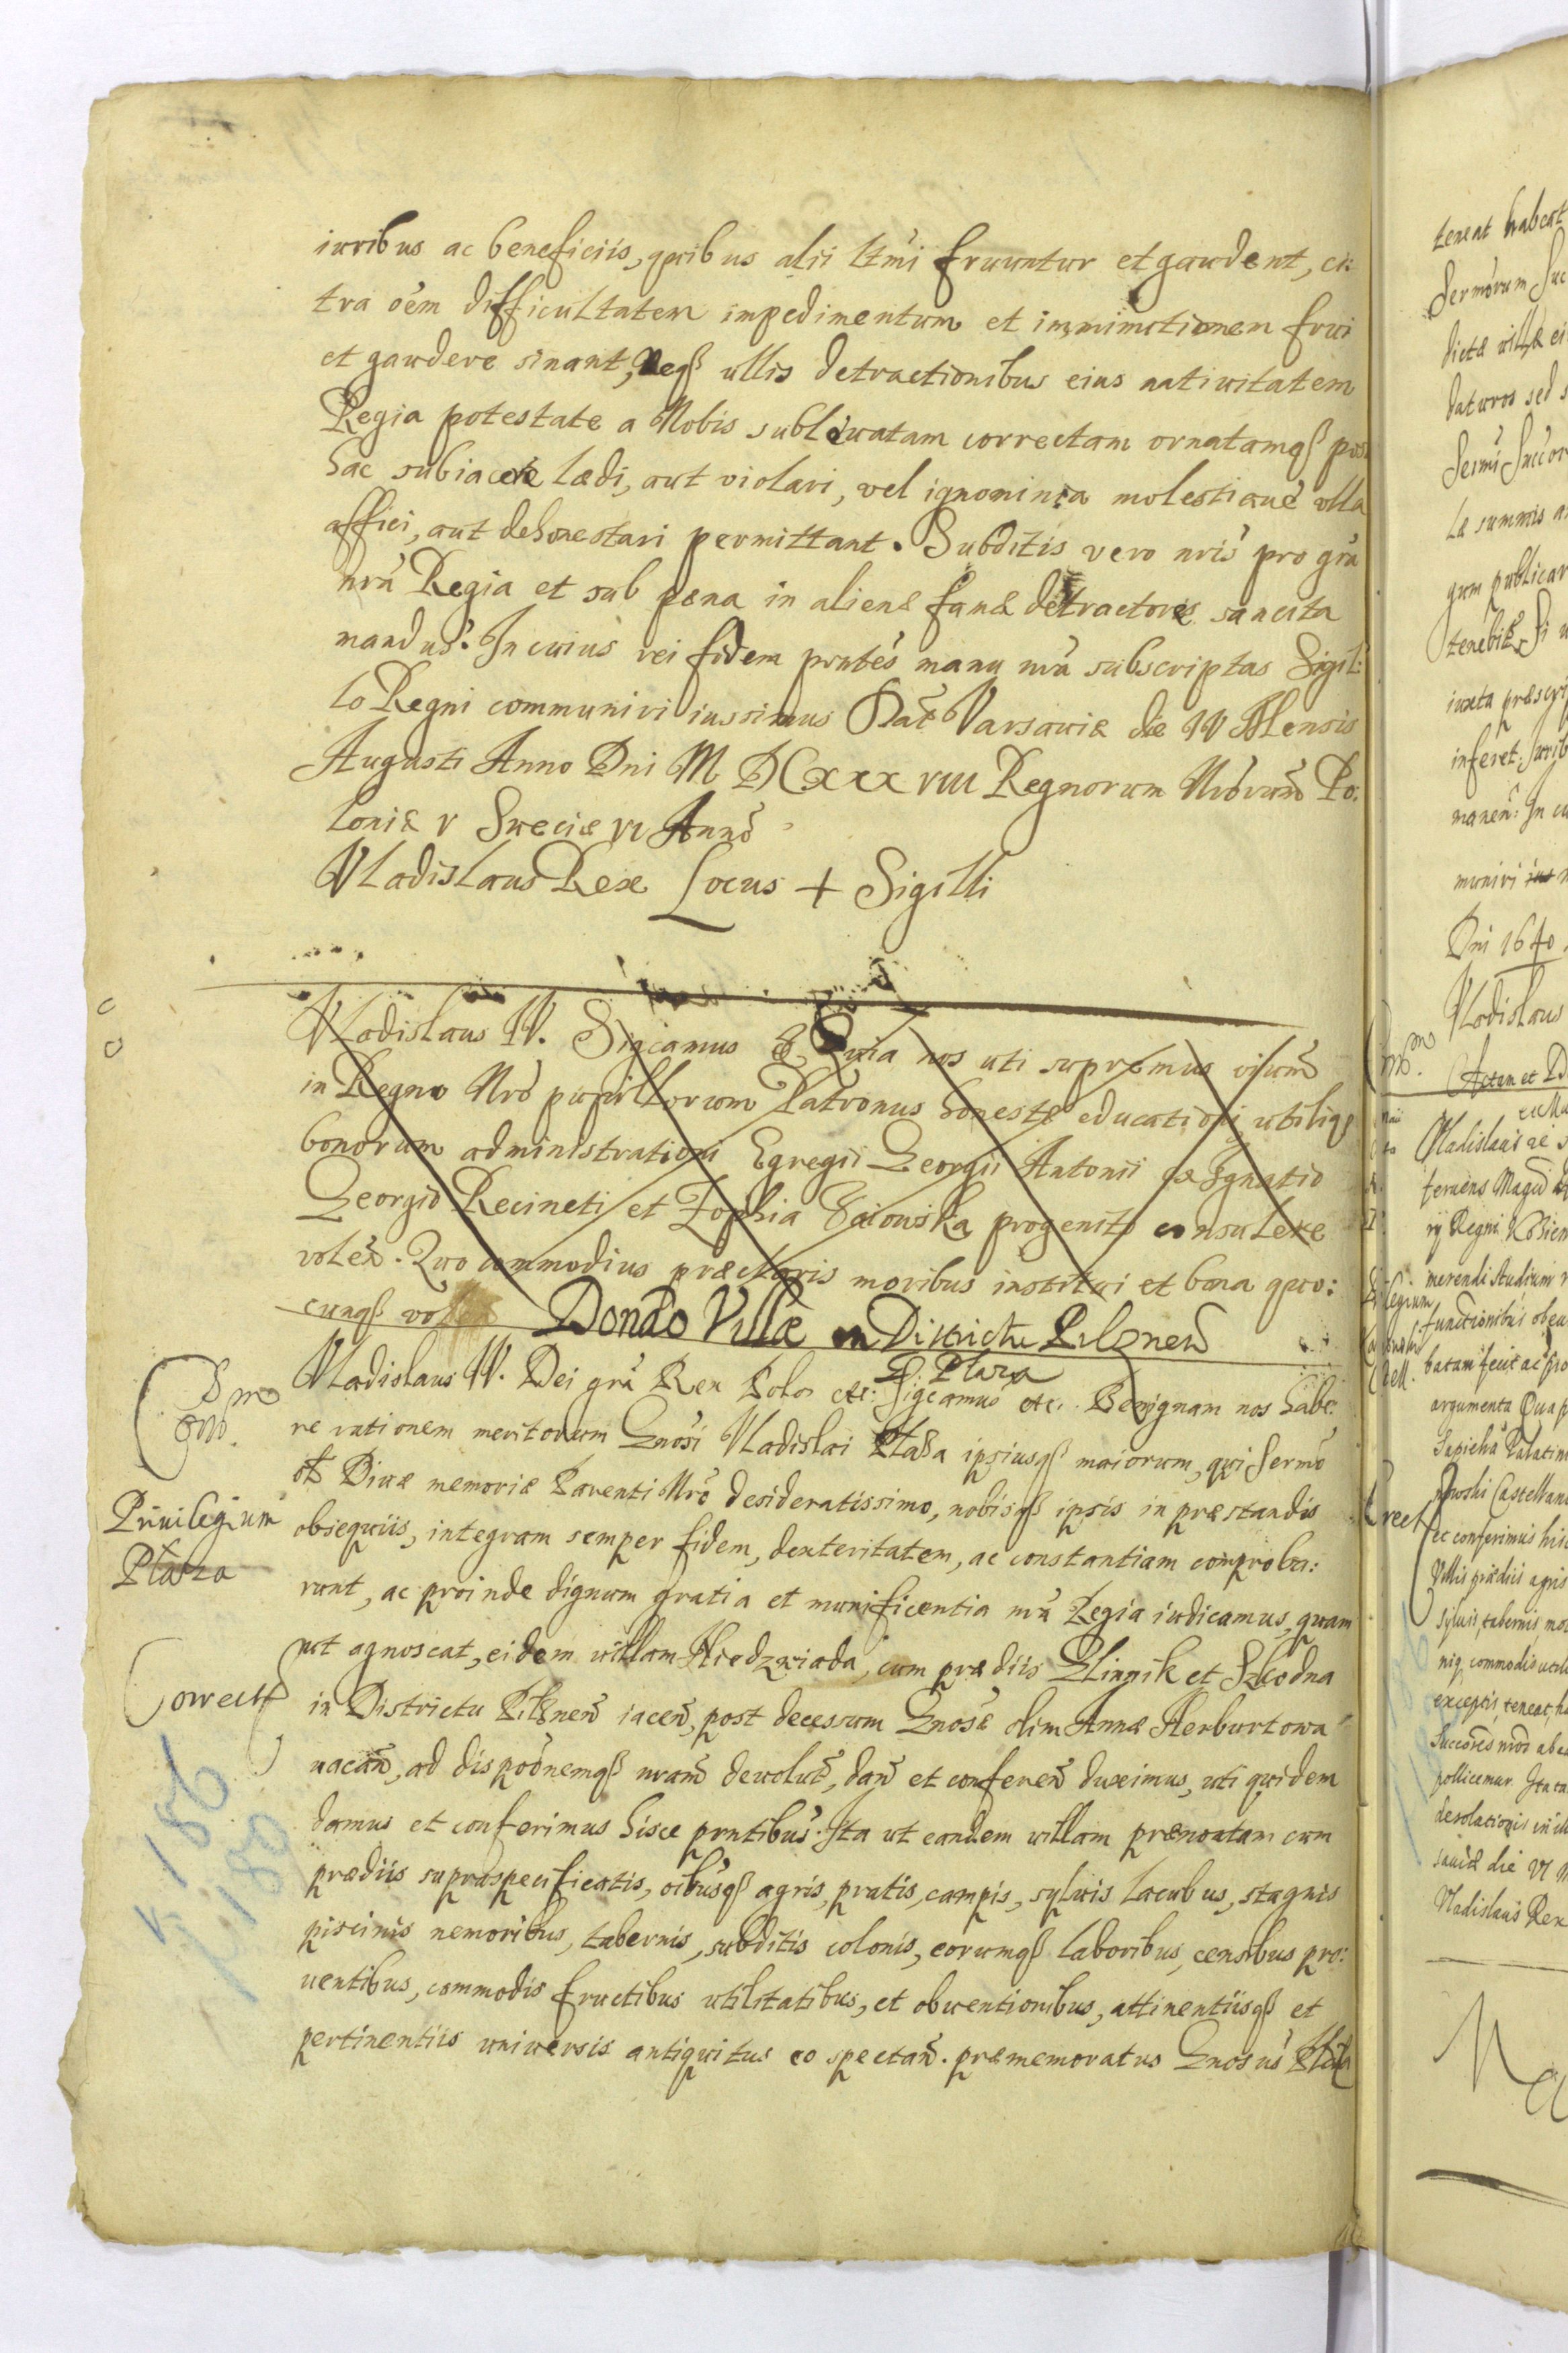 iuribus ac beneficiis, quibus alii ltmi fruuntur et gaudent, ci
tra oem difficultatem impedimentum et imminutionem frui
et gaudere sinant, neqȝ ullis detractionibus eius natiuitatem
Regia potestate a Nobis subleuatam correctam ornatamqȝ post
hac subiacere lædi, aut violari, vel ignominia molestiaue ulla
affici, aut dehonestari permittant. Subditis vero nris pro gra
nra Regia et sub pæna in alienæ famæ detractores sancita
mandus. In cuius rei fidem pntes manu nra subscriptas Sigil:
lo Regni communiri iussimus Dat Varsauiæ die IV Mensis
Augusti Anno Dni M DC xxx viii Regnorum Nrorum Po:
loniæ v Sueciæ vi Anno
Vladislaus Rex Locus + Sigilli
Vladislaus IV. Sigcamus & Quia nos uti supremus oium
in Regno Nro pupillorum Patronus honestæ educationi utiliqȝ
bonorum administrationi Egregii Georgii Antonii ex Ignatio
Georgio Recineti et Zophia progenito consulere
volen. Quo commodius præclaris moribus institui et bona quo:
cunqȝ
Donao Villæ in Districtu Pilznen
G. Plaza
Vladislaus IV. Dei gra Rex Polo etc: Sigcamus etc. Benignam nos habe:
re rationem meritorum Gnosi Vladislai Plaza ipsiusqȝ maiorum, qui Sermo
Diuæ memoriæ Parenti Nro desideratissimo, nobisqȝ ipsis in præstandis
obsequiis, integram semper fidem, dexteritatem, ac constantiam comproba:
runt, ac proinde dignum gratia et munificentia nra Regia iudicamus, quam
ut agnoscat, eidem uillam Niedzwiada, cum prædiis Glinnik et Szkodna
in Districtu Pilznen iacen, post decessum Gnosæ olim Annæ Herburtowa
uacan, ad dispoonemqȝ nram deuolut, dan et conferen duximus, uti quidem
damus et conferimus hisce pntibus. Ita ut eandem uillam prænoatam cum
prædiis supraspecificatis, oibusqȝ agris, pratis, campis, syluis lacubus, stagnis
piscinis nemoribus, tabernis, subditis colonis, eorumqȝ laboribus, censibus pro:
uentibus, commodis fructibus utilitatibus, et obuentionibus, attinentiisqȝ et
pertinentiis uniuersis antiquitus eo spectan. præmemoratus Gnosus Plaza
Priuilegium
Plaza
Correct
teneat habeat
Sermorum Suc
dictæ uillæ ei
daturos sed s
Sermi Succor
summis
gum publicar
tenebit. Si
iuxta præscri
inferet. Jurib
manen. In cu
muniri
Dni 1640
Vladislaus
Vladislaus
feruens
rÿ Regni
merendi studium
functionibus
batam fecit ac
argumenta Qua
Sapieha Palatin
Castellan
ec conferimus hisc
Villis prædiis agris
syluis, tabernis
niq commodis
exceptis, teneat, ha
Succores
pollicemur. Ita ta
desolationis
die VI
Vladislaus Rex